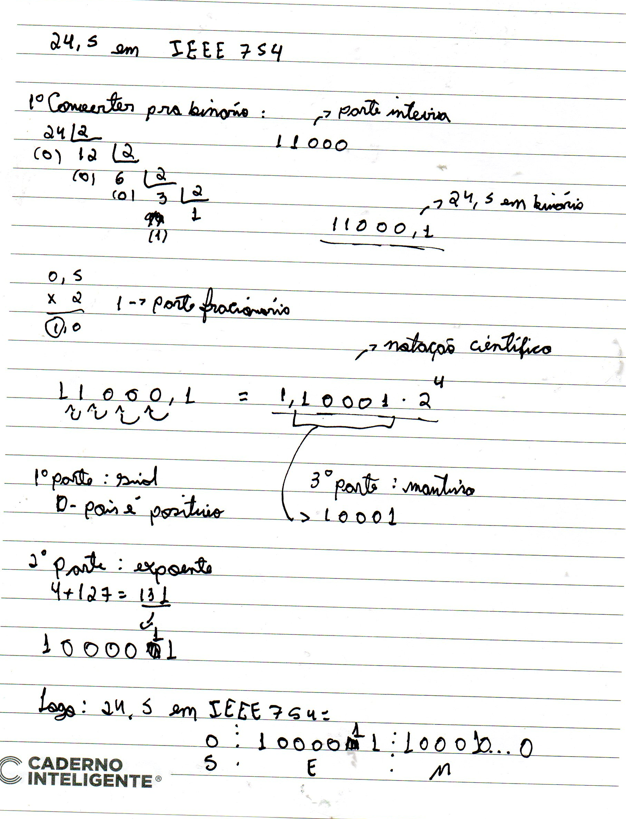 24,5 em IEEE 754
1º Converter pra binário :
→ parte inteira
11000
24 |2
(0) 12 |2
(0) 6 |2
(0) 3 |2
(1) 1
→ 24,5 em binário
11000,1
0,5
x 2
1,0
1 -> parte fracionário
→ notação científica
11000,1 = 1,10001 · 2⁴
1º parte : sinal
0- pois é positivo
3º parte : mantissa
→ 10001
2º parte : expoente
4+127 = 131
10000011
Logo: 24,5 em IEEE 754=
0 : 10000011 : 100010...0
S : E : M
CADERNO
INTELIGENTE®